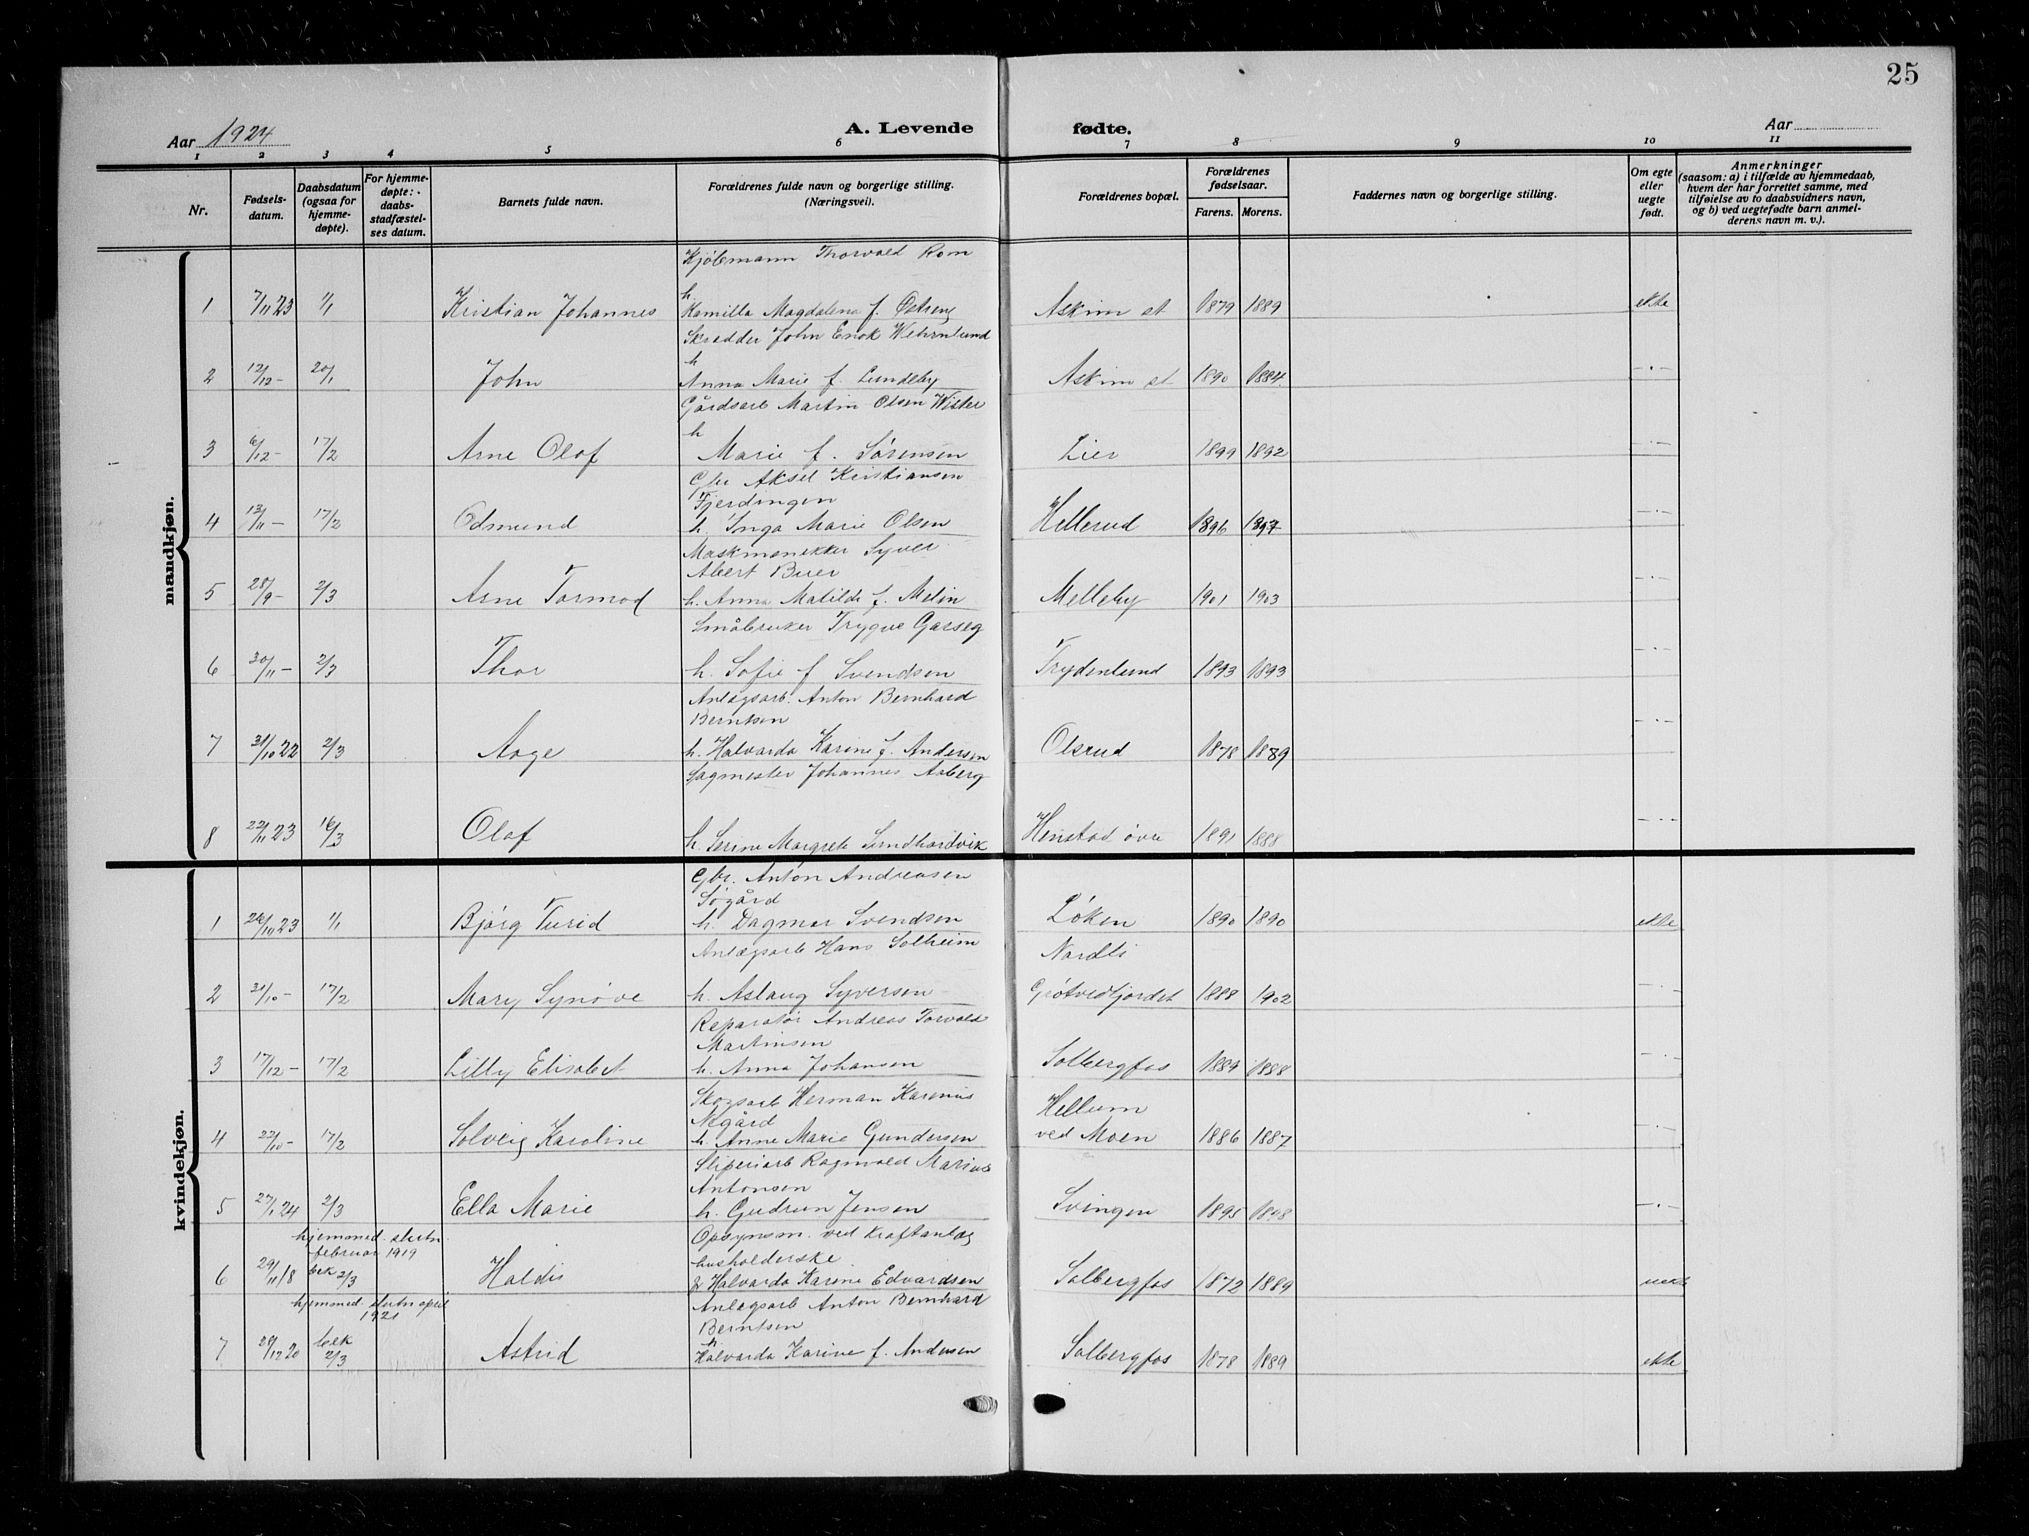 25
Aar 1924
A. Levende fødte.
Aar
1 2 3 4 5 6 7 8 9 10 11
Nr.
Fødsels-
datum.
Daabsdatum
(ogsaa for
hjemme-
døpte).
For hjemme-
døpte:
daabs-
stadfæstel-
ses datum.
Barnets fulde navn.
Forældrenes fulde navn og borgerlige stilling.
(Næringsvei).
Forældrenes bopæl.
Forældrenes
fødselsaar.
Farens. Morens.
Faddernes navn og borgerlige stilling.
Om egte
eller
uegte
født.
Anmerkninger
(saasom: a) i tilfælde av hjemmedaab,
hvem der har forrettet samme, med
tilføielse av to daabsvidners navn,
og b) ved uegtefødte barn anmel-
derens navn m. v.).
mandkjøn.
Kjøbmann Thorvald Rom
h
1 7/11 23 1/1 Kristian Johannes Kamilla Magdalena f. Østreng Askim st 1879 1889 ekte
Skrædder John Enok Wehrnlund
h
2 12/12 - 20/1 John Anna Marie f. Lundeby Askim st 1890 1884 - · -
Gårdsarb Martin Olsen Wister
h
3 6/12 - 17/2 Arne Olaf Marie f. Sørensen Lier 1899 1892 - · -
Gbr Aksel Kristiansen
Fjerdingen
4 13/11 - 17/2 Odmund h Inga Marie Olsen Hellerud 1896 1897 - · -
Maskmenikker Syver
Abert Buer
5 28/9 - 2/3 Arne Tormod h. Anna Matilde f. Melin Melleby 1901 1903 - · -
Småbruker Trygve Garseg
6 30/11 - 2/3 Thor h. Sofie f Svendsen Trydenlund 1893 1893 - · -
Anlægsarb. Anton Bernhard
Berntsen
7 31/10 22 2/3 Aage h. Halvarda Karine f. Andersen Olsrud 1878 1889 - · -
Sagmester Johannes Asberg
8 22/11 23 16/3 Olaf h. Serine Margrete Sundhardvik Henstad øvre 1891 1888 - · -
kvindekjøn.
Gbr. Anton Andreasen
Søgård
1 26/10 23 1/1 Bjørg Turid h. Dagmar Svendsen Løken 1890 1890 ekte
Anlægsarb Hans Solheim Nordli
2 31/10 - 17/2 Mary Synøve h. Aslaug Syversen Grøtvedfjordet 1888 1902 - · -
Reparatør Andreas Torvald
Martinsen
3 17/12 - 17/2 Lilly Elisabet h. Anna Johansen Solbergfos 1889 1888 - · -
Skogsarb Herman Karenius Hellum
Nægård
4 22/10 - 17/2 Solveig Karoline h. Anne Marie Gundersen ved Moen 1886 1887 - · -
Sliperiarb Ragnvald Marius
Antonsen
5 27/1 24 2/3 Ella Marie h. Gudrun Jensen Svingen 1895 1898 - · -
hjemmed. slutn. Opsynsm. ved Kraftanlæg
februar 1919 husholderske
6 29/11 18 bek 2/3 Haldis Halvarda Karine Edvardsen Solbergfos 1872 1889 uekte
hjemmed slutn april Anlægsarb Anton Bernhard
1921 Berntsen
h
7 28/12 20 bek 2/3 Astrid Halvarda Karine f. Andersen Solbergfos 1878 1889 ekte